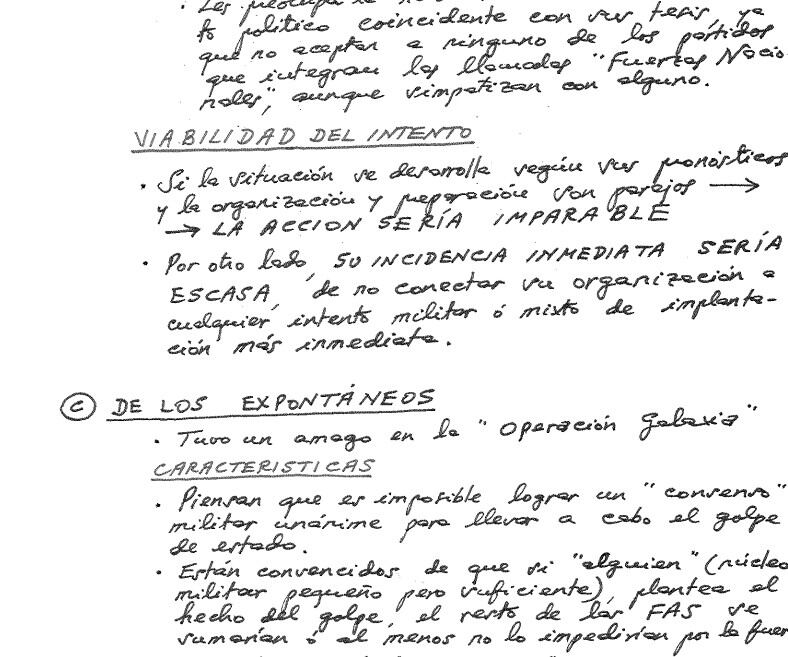 · Les preocupa
lo político coincidente con sus tesis, ya
que no aceptan a ninguno de los partidos
que integran las llamadas "Fuerzas Nacio-
nales", aunque simpatizan con alguno.
VIABILIDAD DEL INTENTO
· Si la situación se desarrolla según sus pronósticos
y la organización y preparación son parejos →
→ LA ACCION SERÍA IMPARABLE
· Por otro lado, SU INCIDENCIA INMEDIATA SERÍA
ESCASA, de no conectar su organización a
cualquier intento militar ó mixto de implanta-
ción más inmediata.
C DE LOS EXPONTÁNEOS
· Tuvo un amago en la "Operación Galaxia"
CARACTERISTICAS
· Piensan que es imposible lograr un "consenso"
militar unánime para llevar a cabo el golpe
de estado.
· Están convencidos de que si "alguien" (núcleo
militar pequeño pero suficiente), plantea el
hecho del golpe, el resto de las FAS se
sumarían ó al menos no lo impedirían por la fuer